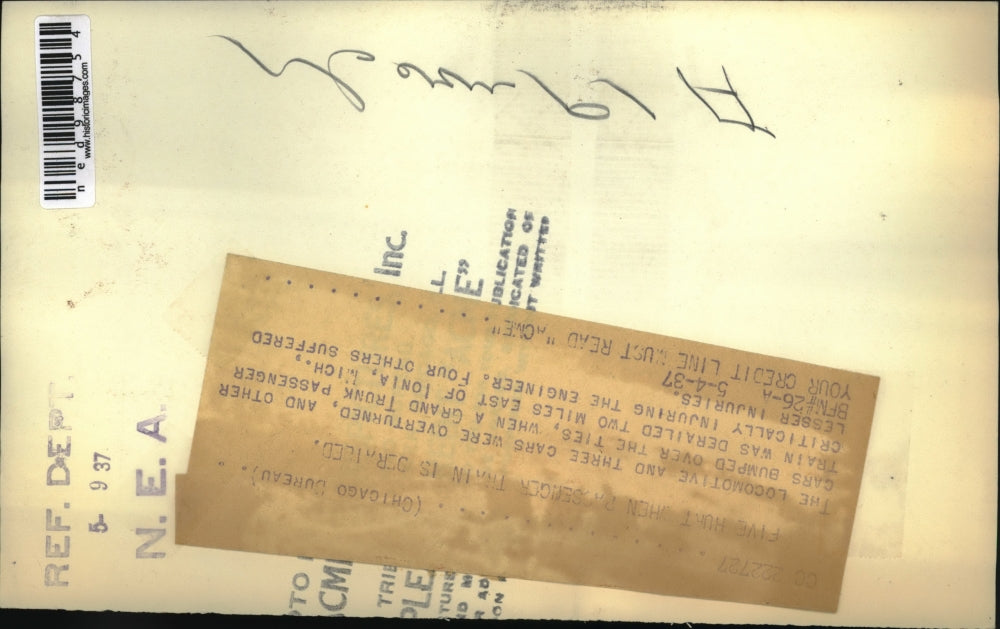 CC 222727 . . . . . . . . (CHICAGO BUREAU).
FIVE HURT WHEN PASSENGER TRAIN IS DERAILED.
THE LOCOMOTIVE AND THREE CARS WERE OVERTURNED, AND OTHER
CARS BUMPED OVER THE TIES, WHEN A GRAND TRUNK PASSENGER
TRAIN WAS DERAILED TWO MILES EAST OF IONIA, MICH.,
CRITICALLY INJURING THE ENGINEER. FOUR OTHERS SUFFERED
LESSER INJURIES.
BFN#26-A 5-4-37
YOUR CREDIT LINE MUST READ "ACME" . . . . . . . .
REF. DEPT
5- 9 37
N. E. A.
Inc.
OTO
CME
TRIB
PLE
E"
TURE
UBLICATION
ICATED OF
UT WRITTEN
ned98754
www.historicimages.com